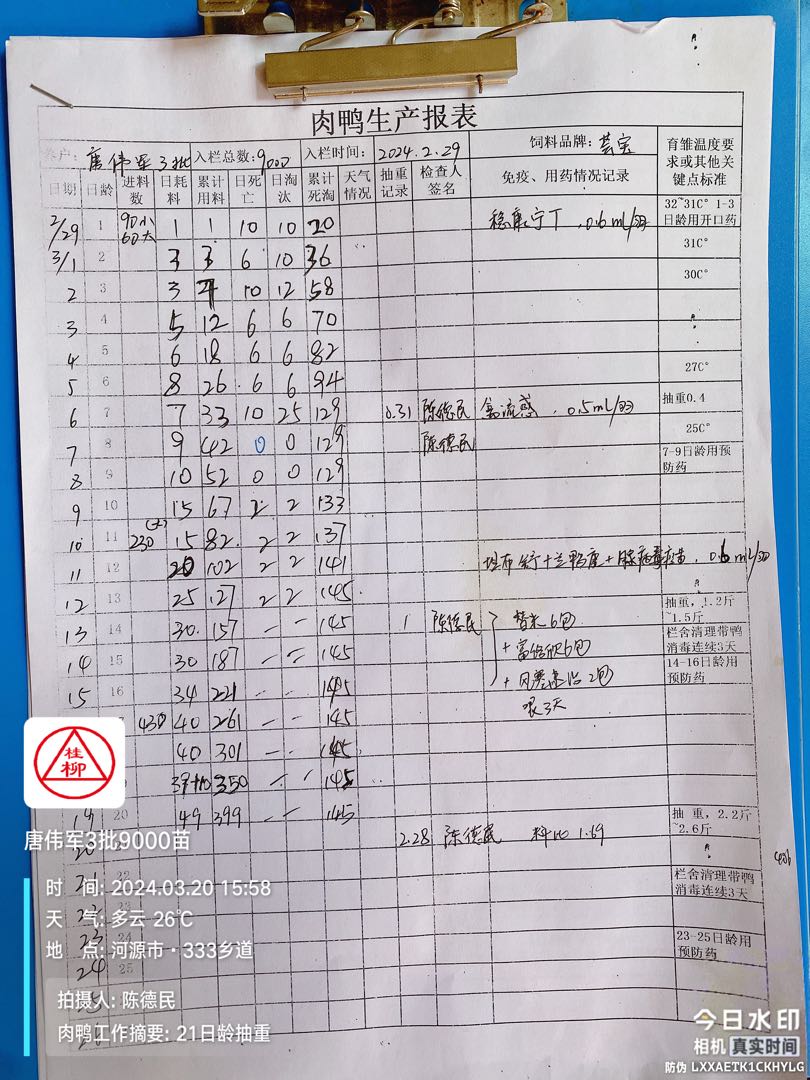 肉鸭生产报表
养户: 唐伟军3批 入栏总数: 9000 入栏时间: 2024.2.29 饲料品牌: 育雏温度要求或其他关键点标准
日期 日龄 进料数 日耗料 累计用料 日死亡 日淘汰 累计死淘 天气情况 抽重记录 检查人签名 免疫、用药情况记录
2/29 1 90小 60大 1 1 10 10 20 0.6ml/羽 32~31C° 1-3日龄用开口药
3/1 2 3 3 6 10 36 31C°
2 3 3 10 12 58 30C°
3 4 5 12 6 6 70
4 5 6 18 6 6 82
5 6 8 26 6 6 94 27C°
6 7 7 33 10 25 129 0.31 陈德民 禽流感 0.5ml/羽 抽重0.4
7 8 9 42 0 0 129 陈德民 25C°
8 9 10 52 0 0 129 7-9日龄用预防药
9 10 15 67 2 2 133
10 11 230(大) 15 82 2 2 137
11 12 20 102 2 2 141 0.6ml/羽
12 13 25 127 2 2 145
13 14 30 157 - - 145 1 陈德民 6包 抽重,1.2斤~1.5斤
14 15 30 187 - - 145 6包 栏舍清理带鸭消毒连续3天
15 16 34 221 - - 145 2包 14-16日龄用预防药
430 40 261 - - 145 3天
40 301 - - 145
350 - - 145
19 20 49 399 - - 145 抽重,2.2斤~2.6斤
20 2.28 陈德民 料比1.69
21 22 栏舍清理带鸭消毒连续3天
22 23
23 24 23-25日龄用预防药
24 25
桂柳
唐伟军3批9000苗
时 间: 2024.03.20 15:58
天 气: 多云 26℃
地 点: 河源市·333乡道
拍摄人: 陈德民
肉鸭工作摘要: 21日龄抽重
今日水印
相机 真实时间
防伪 LXXAETK1CKHYLG